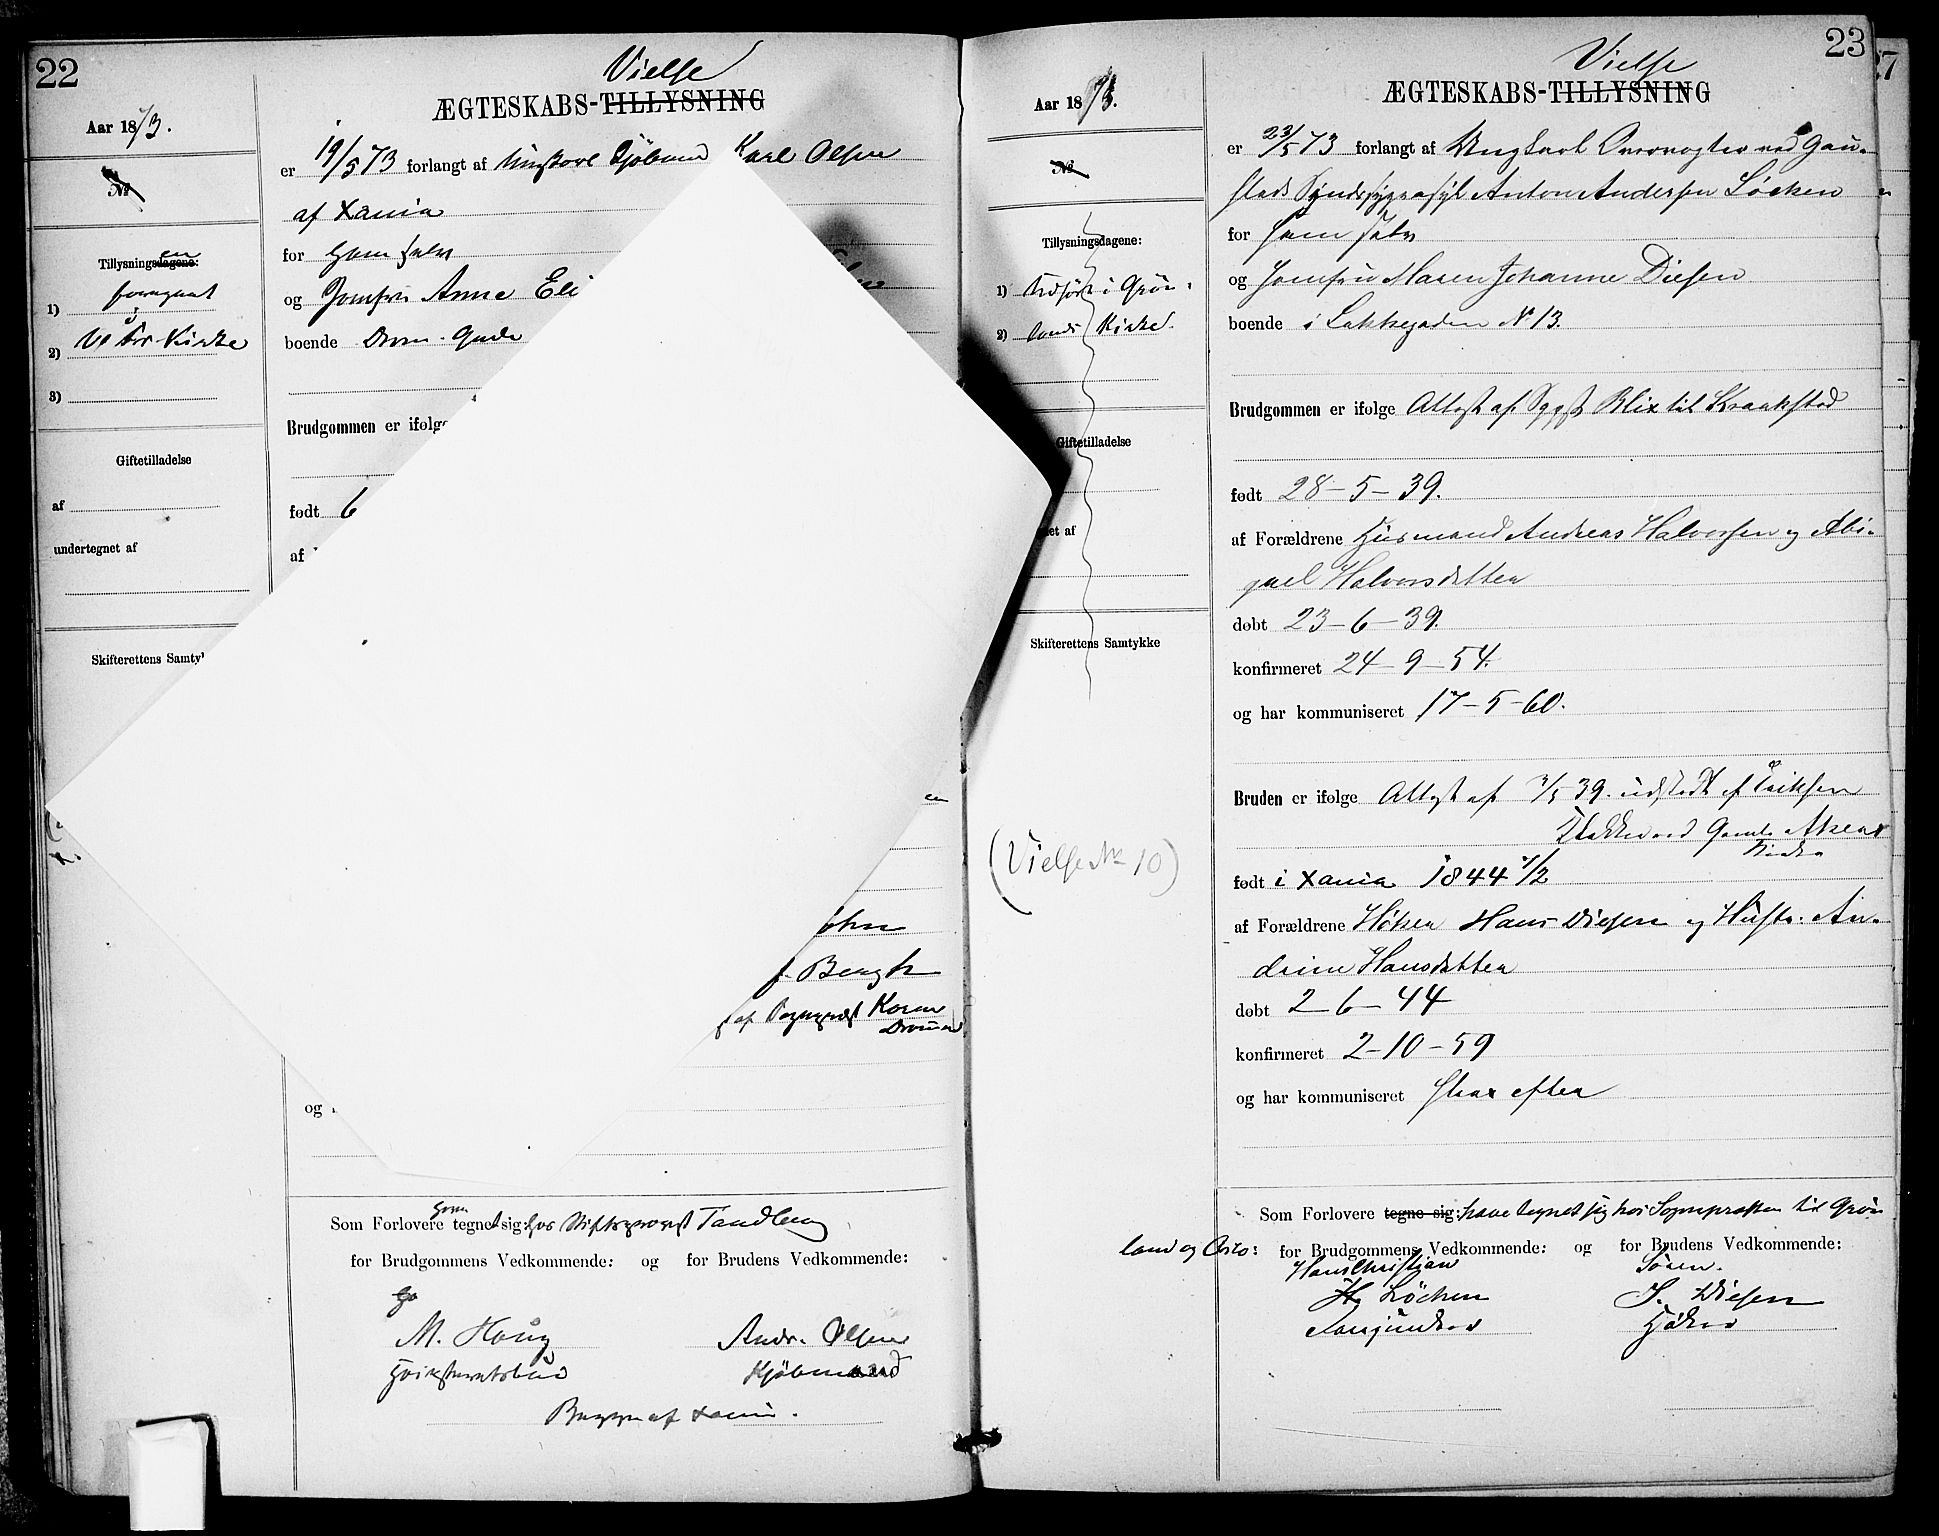 22
Aar 1873.
№
Tillysningsdagene: en
1) foregaaet
i
2) Vt Frs Kirke
3)
Giftetilladelse
af
undertegnet af
Skifterettens Samty
Vielse
ÆGTESKABS-TILLYSNING
er 19/5 73 forlangt af Ungkarl Kjøbmd Karl Olsen
af Xania
for ham selv
og Jomfru Anne Eli
boende Dram. Gade
Brudgommen er ifølge
født 6
af
f. Bengts
af Sognepræst Koren
Drammen
og
Som Forlovere tegnet sig: hos Stiftsprovst Tandberg
for Brudgommens Vedkommende: og for Brudens Vedkommende:
M. Haug
Andr. Olsen
Kjøbmand
Begge af Xania.
23
Aar 1873.
№
Tillysningsdagene:
1) Udført i Grøn-
2) lands Kirke.
Giftetilladelse
net af
Skifterettens Samtykke
(Vielse № 10)
Vielse
ÆGTESKABS-TILLYSNING
er 23/5 73 forlangt af Ungkarl Overvogter ved Gau-
stads Sindssygeasyl Anton Andersen Løcken
for ham selv
og Jomfru Maren Johanne Diesen
boende i Lakkegaden № 13.
Brudgommen er ifølge Attest af Sgpst Blix til Kraakstad
født 28-5-39.
af Forældrene Husmand Andreas Halvorsen og Abi-
gael Halvorsdatter
døbt 23-6-39.
konfirmeret 24-9-54.
og har kommuniseret 17-5-60.
Bruden er ifølge Attest af 3/5 39. udstedt af Eriksen
Klokker ved Gamle Akers
Kirke
født i Xania 1844 4/2
af Forældrene Høker Hans Diesen og Hustr. An-
drine Hansdatter
døbt 2-6-44
konfirmeret 2-10-59
og har kommuniseret strax efter
Som Forlovere tegne sig: have tegnet sig hos Sognepræsten til Grøn
land og Oslo: for Brudgommens Vedkommende: og for Brudens Vedkommende:
Hans Christian
Søren.
H. Løcken
S. Diesen
Høker